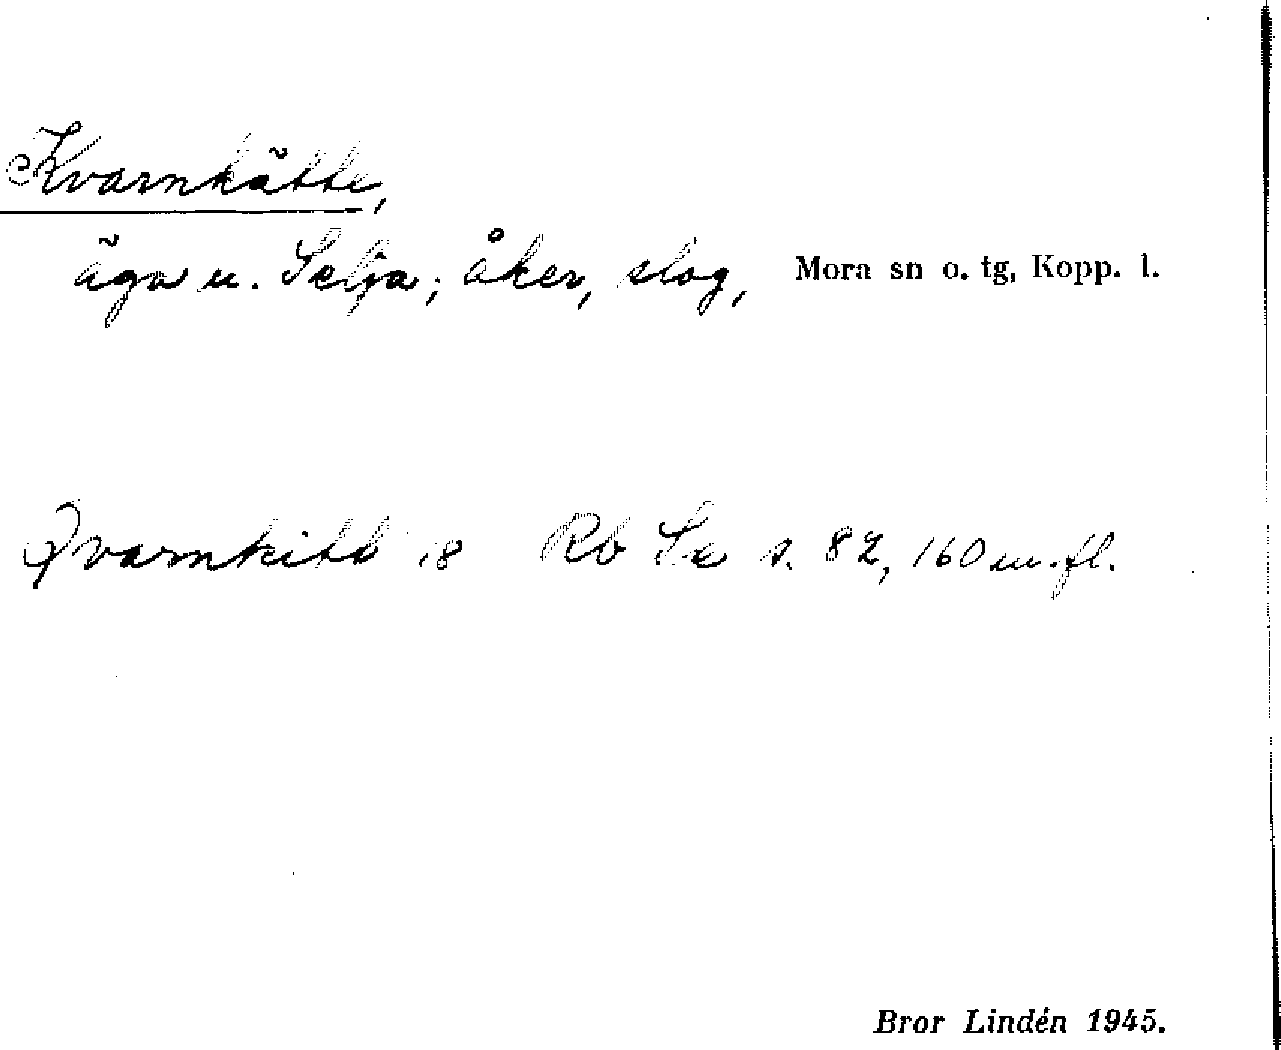 Kvarnkätte,
äga u. Selja; åker, slog, Mora sn o. tg, Kopp. l.
Qvarnkitt 18 Rb Se s. 82, 160 m.fl.
Bror Lindén 1945.